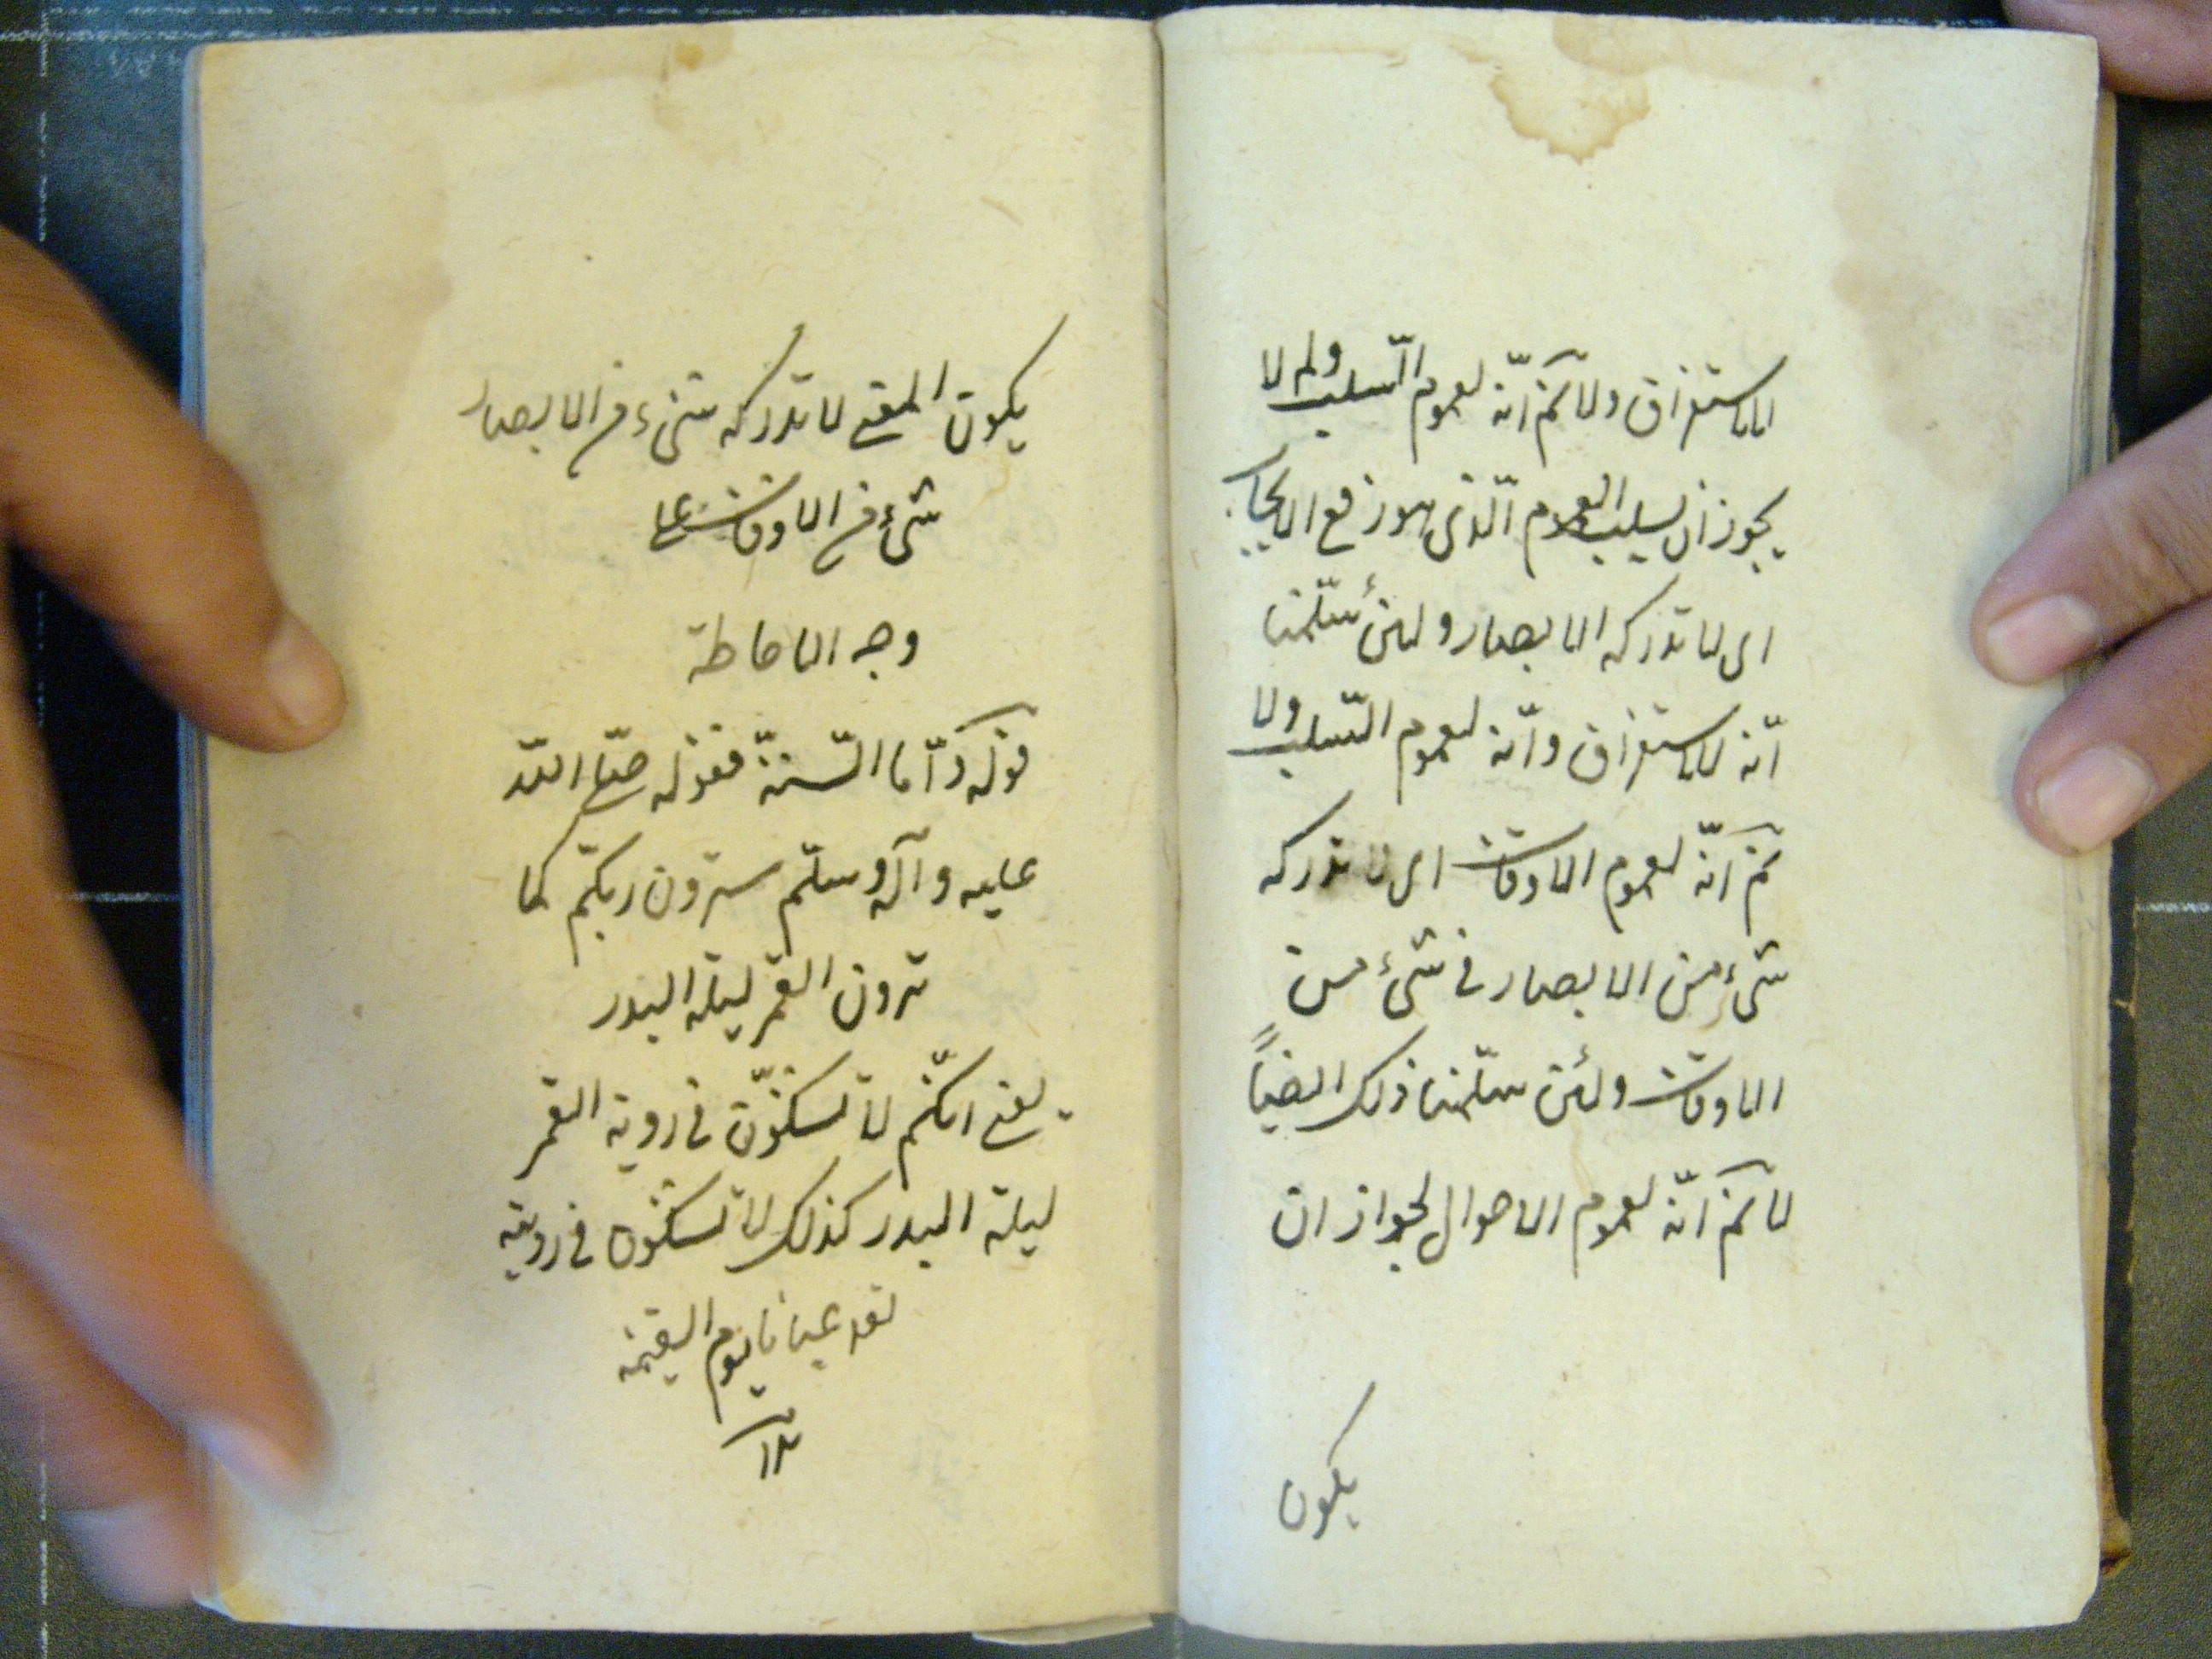 للاستغراق ولا نم انّه لعموم السّلب ولم لا
يجوز ان لسلب العموم الّذى هو رفع الايجاب
اى لا تدركه الابصار ولئن سلّمنا
انّه للاستغراق وانّه لعموم السّلب ولا
نم انّه لعموم الاوقات اى لا تدركه
شئ من الابصار فى شئ من
الاوقات ولئن سلّمنا ذلك ايضاً
لا نم انّه لعموم الاحوال لجواز ان
يكون
يكون المعنى لا تدركه شئ من الابصار
شئ من الاوقات على
وجه الاحاطة
قوله وامّا السّنّة فقوله صلّى اللّه
عليه وآله وسلّم سترون ربّكم كما
ترون القمر ليلة البدر
يعنى انّكم لا تشكّون فى روية القمر
ليلة البدر كذلك لا تشكّون فى رويته
تعه عيانا يوم القيمة
١٢